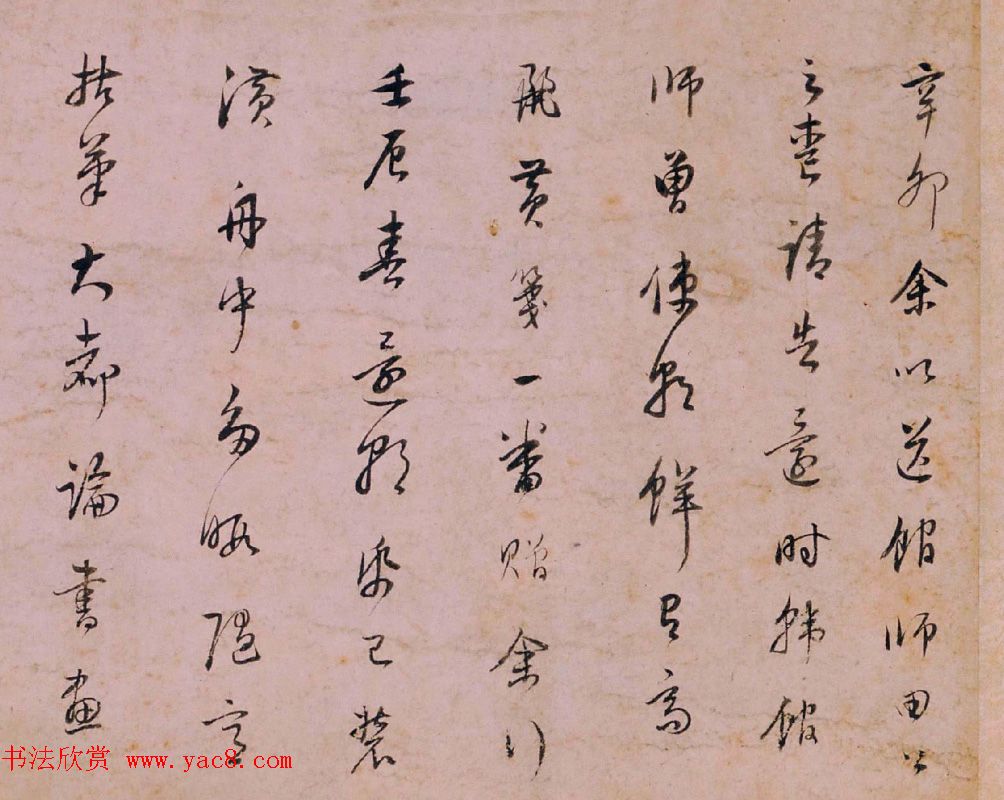 辛卯余以送館師田公
之喪請告還時韓館
師曾使朝鮮以高
麗黃箋一番贈余行
壬辰春還朝帋已裝
潢舟中多暇隨意
拈筆大都論書畫
书法欣赏 www.yac8.com